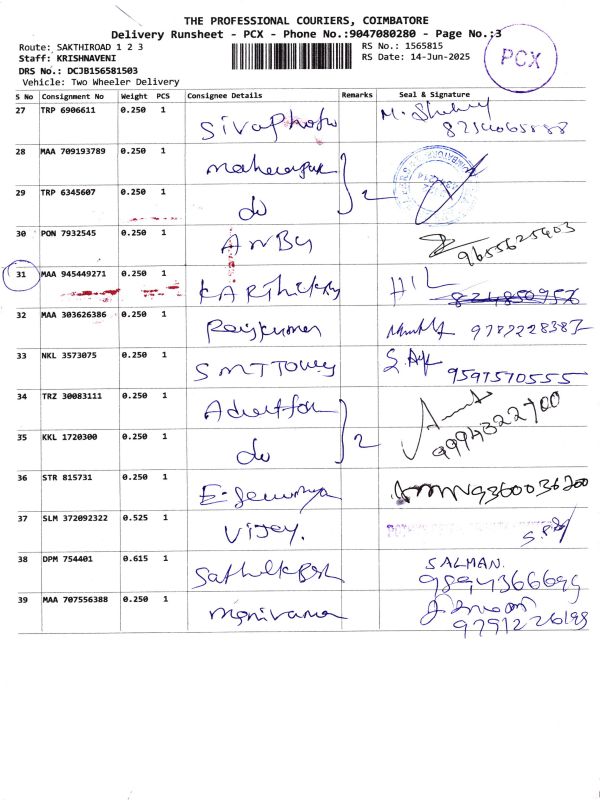 THE PROFESSIONAL COURIERS, COIMBATORE
Delivery Runsheet - PCX - Phone No.:9047080280 - Page No.:3
Route: SAKTHIROAD 1 2 3
RS No.: 1565815
Staff: KRISHNAVENI
RS Date: 14-Jun-2025
PCX
DRS No.: DCJB156581503
Vehicle: Two Wheeler Delivery
S No Consignment No Weight PCS Consignee Details Remarks Seal & Signature
27 TRP 6906611 0.250 1
28 MAA 709193789 0.250 1 2
29 TRP 6345607 0.250 1 do
30 PON 7932545 0.250 1 ANBU 9655625403
31 MAA 945449271 0.250 1 HIL
32 MAA 303626386 0.250 1 Rajkumar
33 NKL 3573075 0.250 1 SMT Towe 9597570555
34 TRZ 30083111 0.250 1 2 9994322700
35 KKL 1720300 0.250 1 do
36 STR 815731 0.250 1 9360036200
37 SLM 372092322 0.525 1 Vijay.
38 DPM 754401 0.615 1 SALMAN.
9894366699
39 MAA 707556388 0.250 1
9791226198